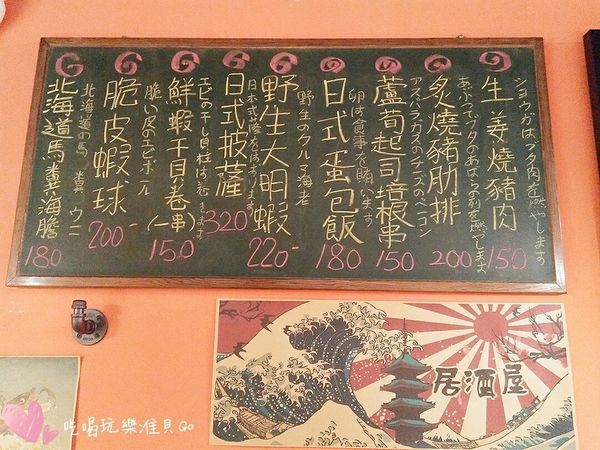 生姜燒豬肉
ショウガはブタ肉を燃やします
150
炙燒豬肋排
あぶってブタのあばら在列を燃やします
200
蘆筍起司培根串
アスパラガスのチーズのベーコン
150
日式蛋包飯
卵は食事を賄います
180
野生大明蝦
野生のクルマ海老
220-
日式披薩
320
鮮蝦干貝卷(一串)
エビの干し貝柱は巻きます
150
脆皮蝦球
脆い皮のエビボール
200-
北海道馬糞海膽
北海道の馬糞ウニ
180
居酒屋
吃喝玩樂准貝Go